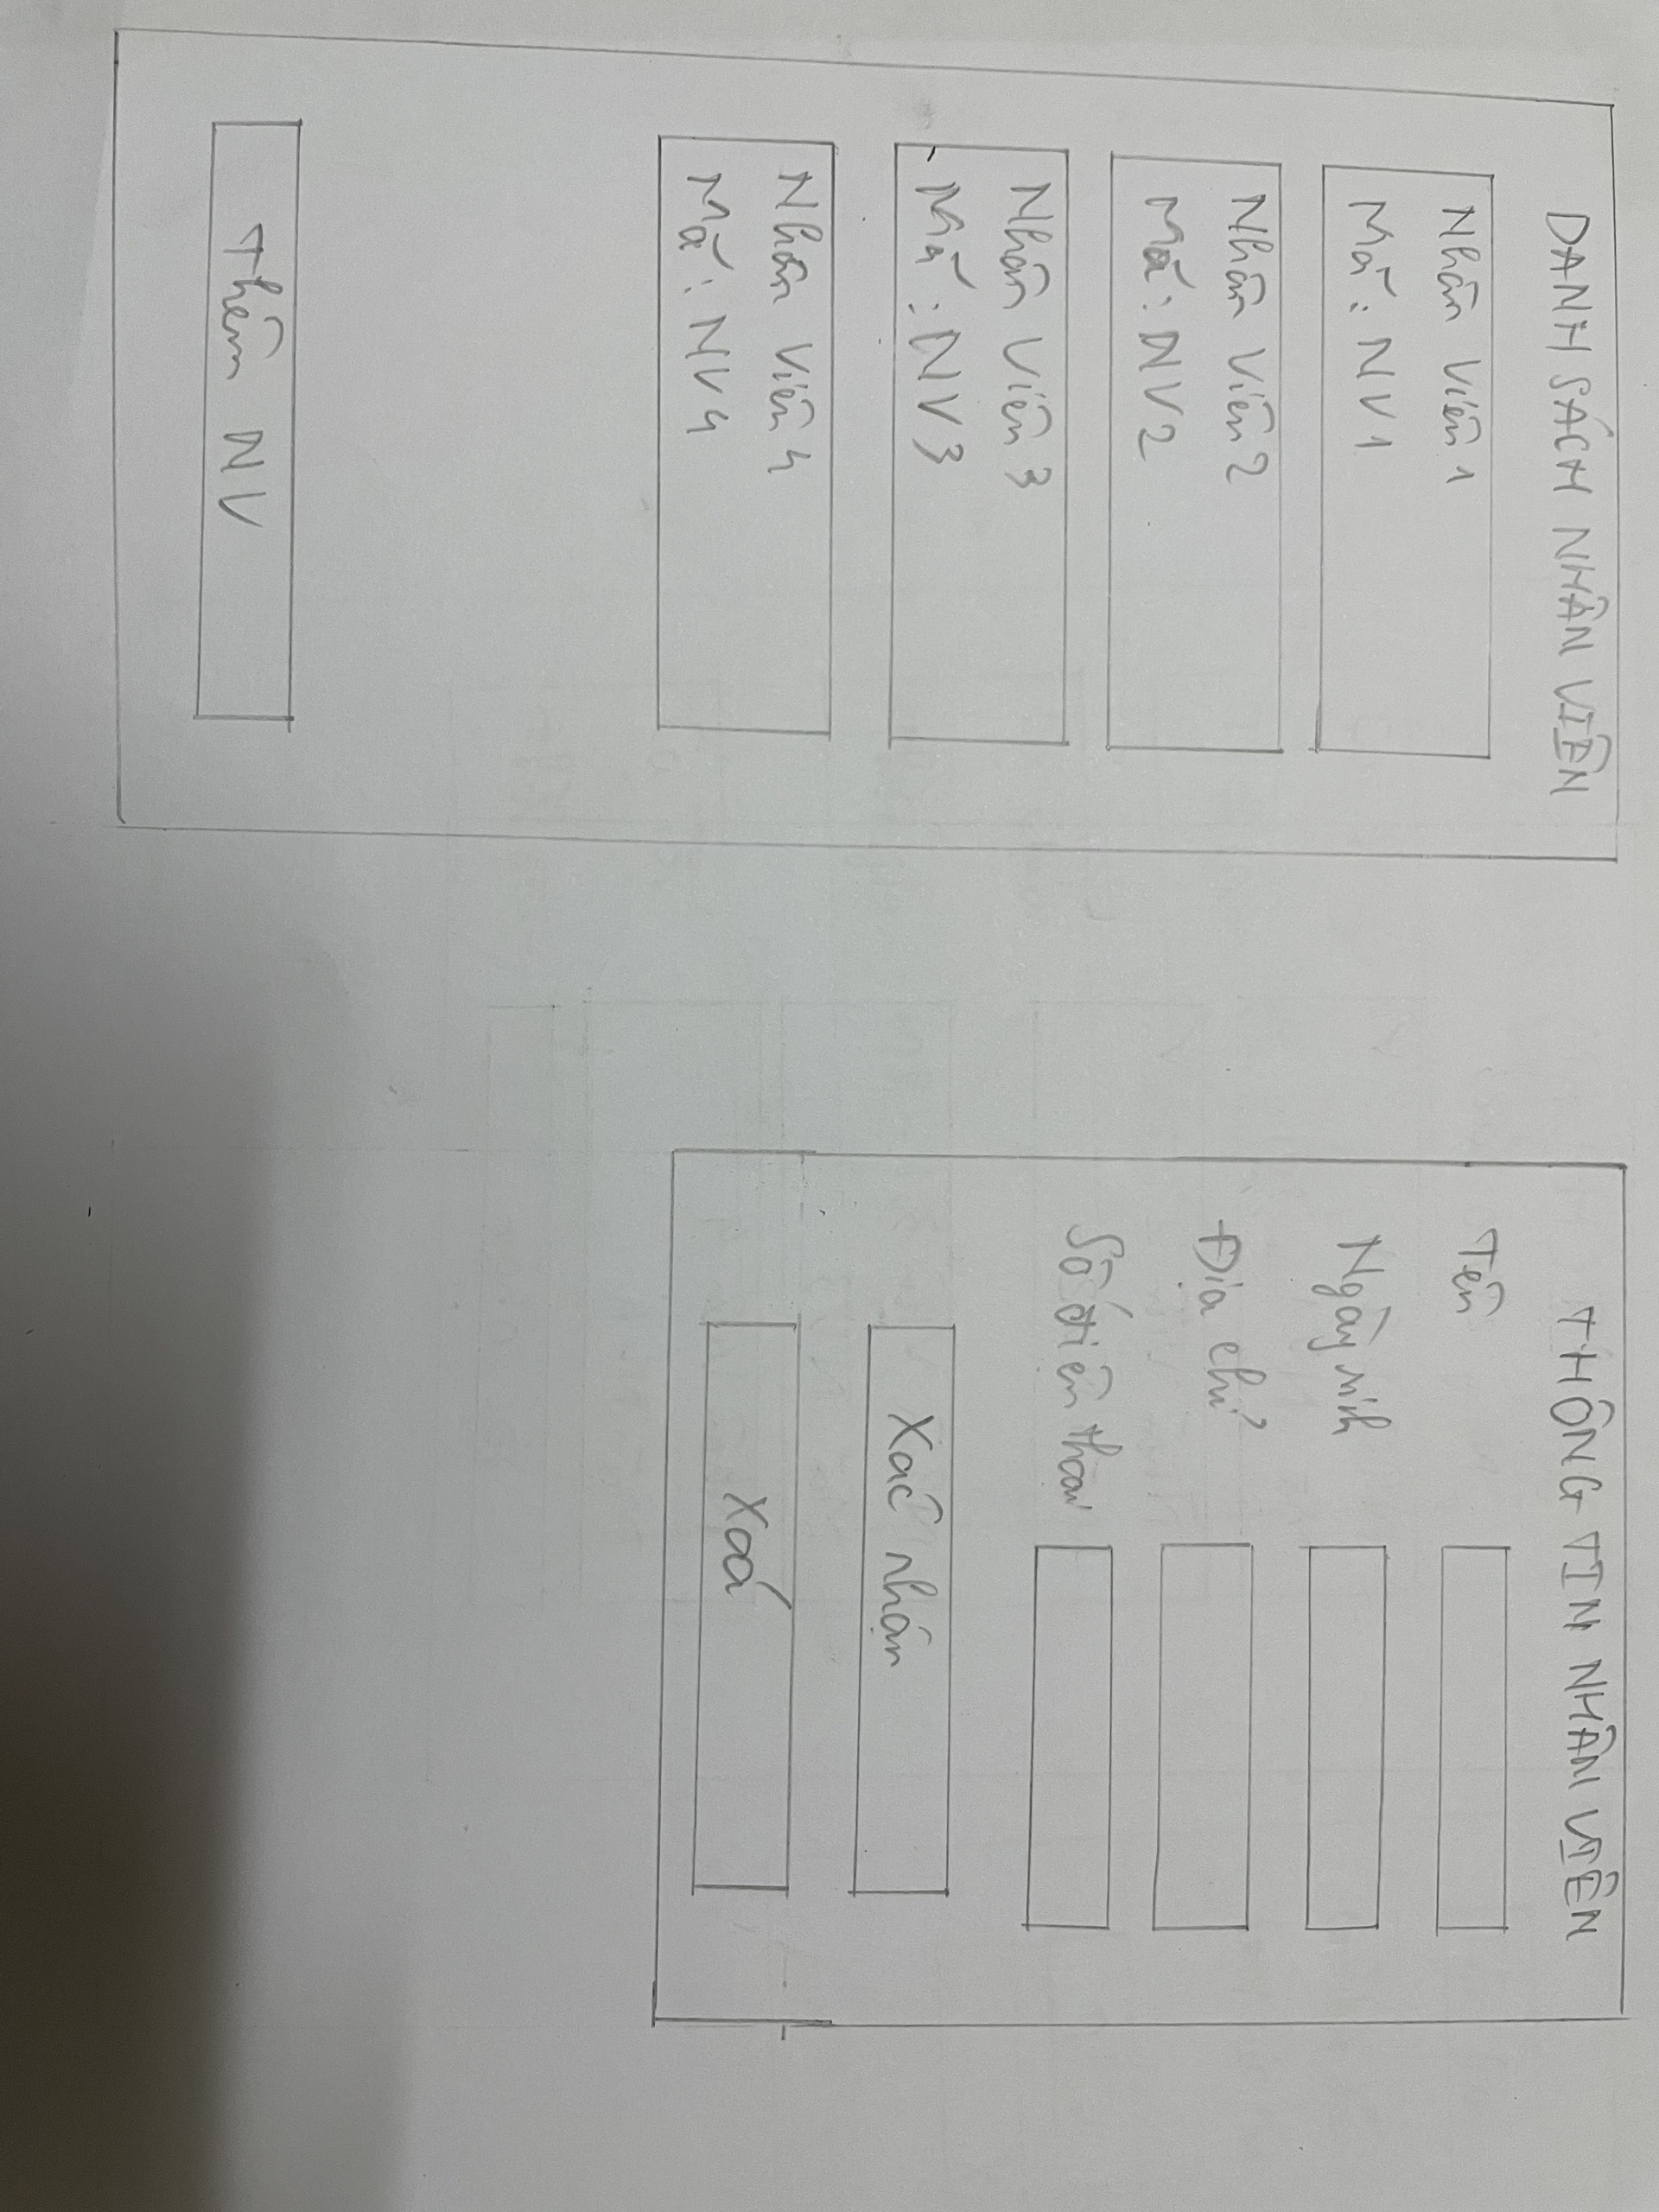 DANH SÁCH NHÂN VIÊN
Nhân Viên 1
Mã: NV1
Nhân Viên 2
Mã: NV2
Nhân Viên 3
Mã: NV3
Nhân Viên 4
Mã: NV4
Thêm NV
THÔNG TIN NHÂN VIÊN
Tên
Ngày sinh
Địa chỉ
Số điện thoại
Xác nhận
Xoá